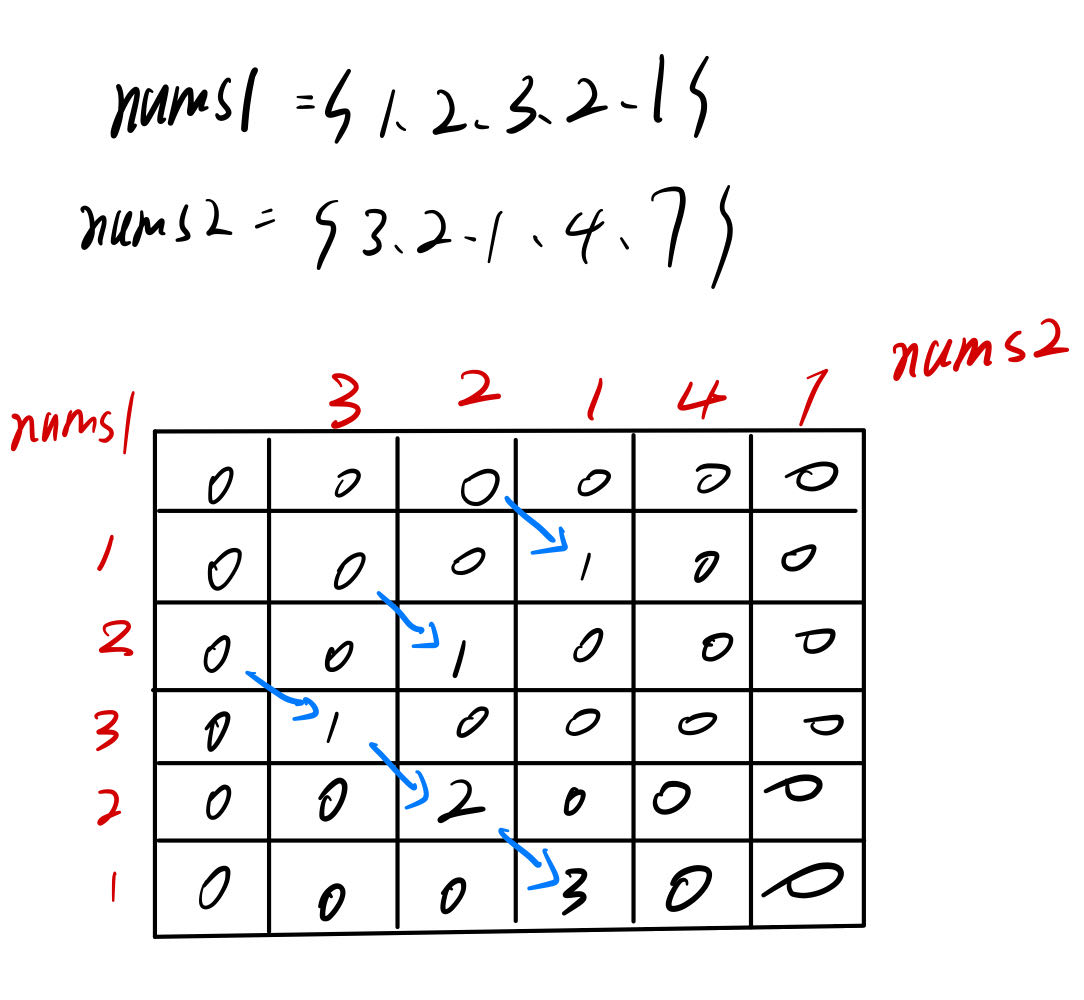 nums1 = { 1、2、3、2、1 }
nums2 = { 3、2、1、4、7 }
nums2
nums1 3 2 1 4 7
0 0 0 0 0 0
1 0 0 0 1 0 0
2 0 0 1 0 0 0
3 0 1 0 0 0 0
2 0 0 2 0 0 0
1 0 0 0 3 0 0